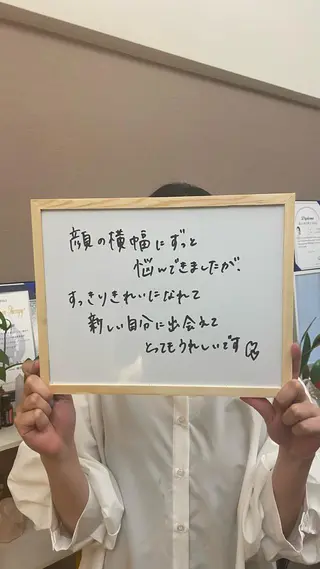 顔の横幅にずっと
悩んできましたが、
すっきりきれいになれて
新しい自分に出会えて
とってもうれしいです♡
Diploma